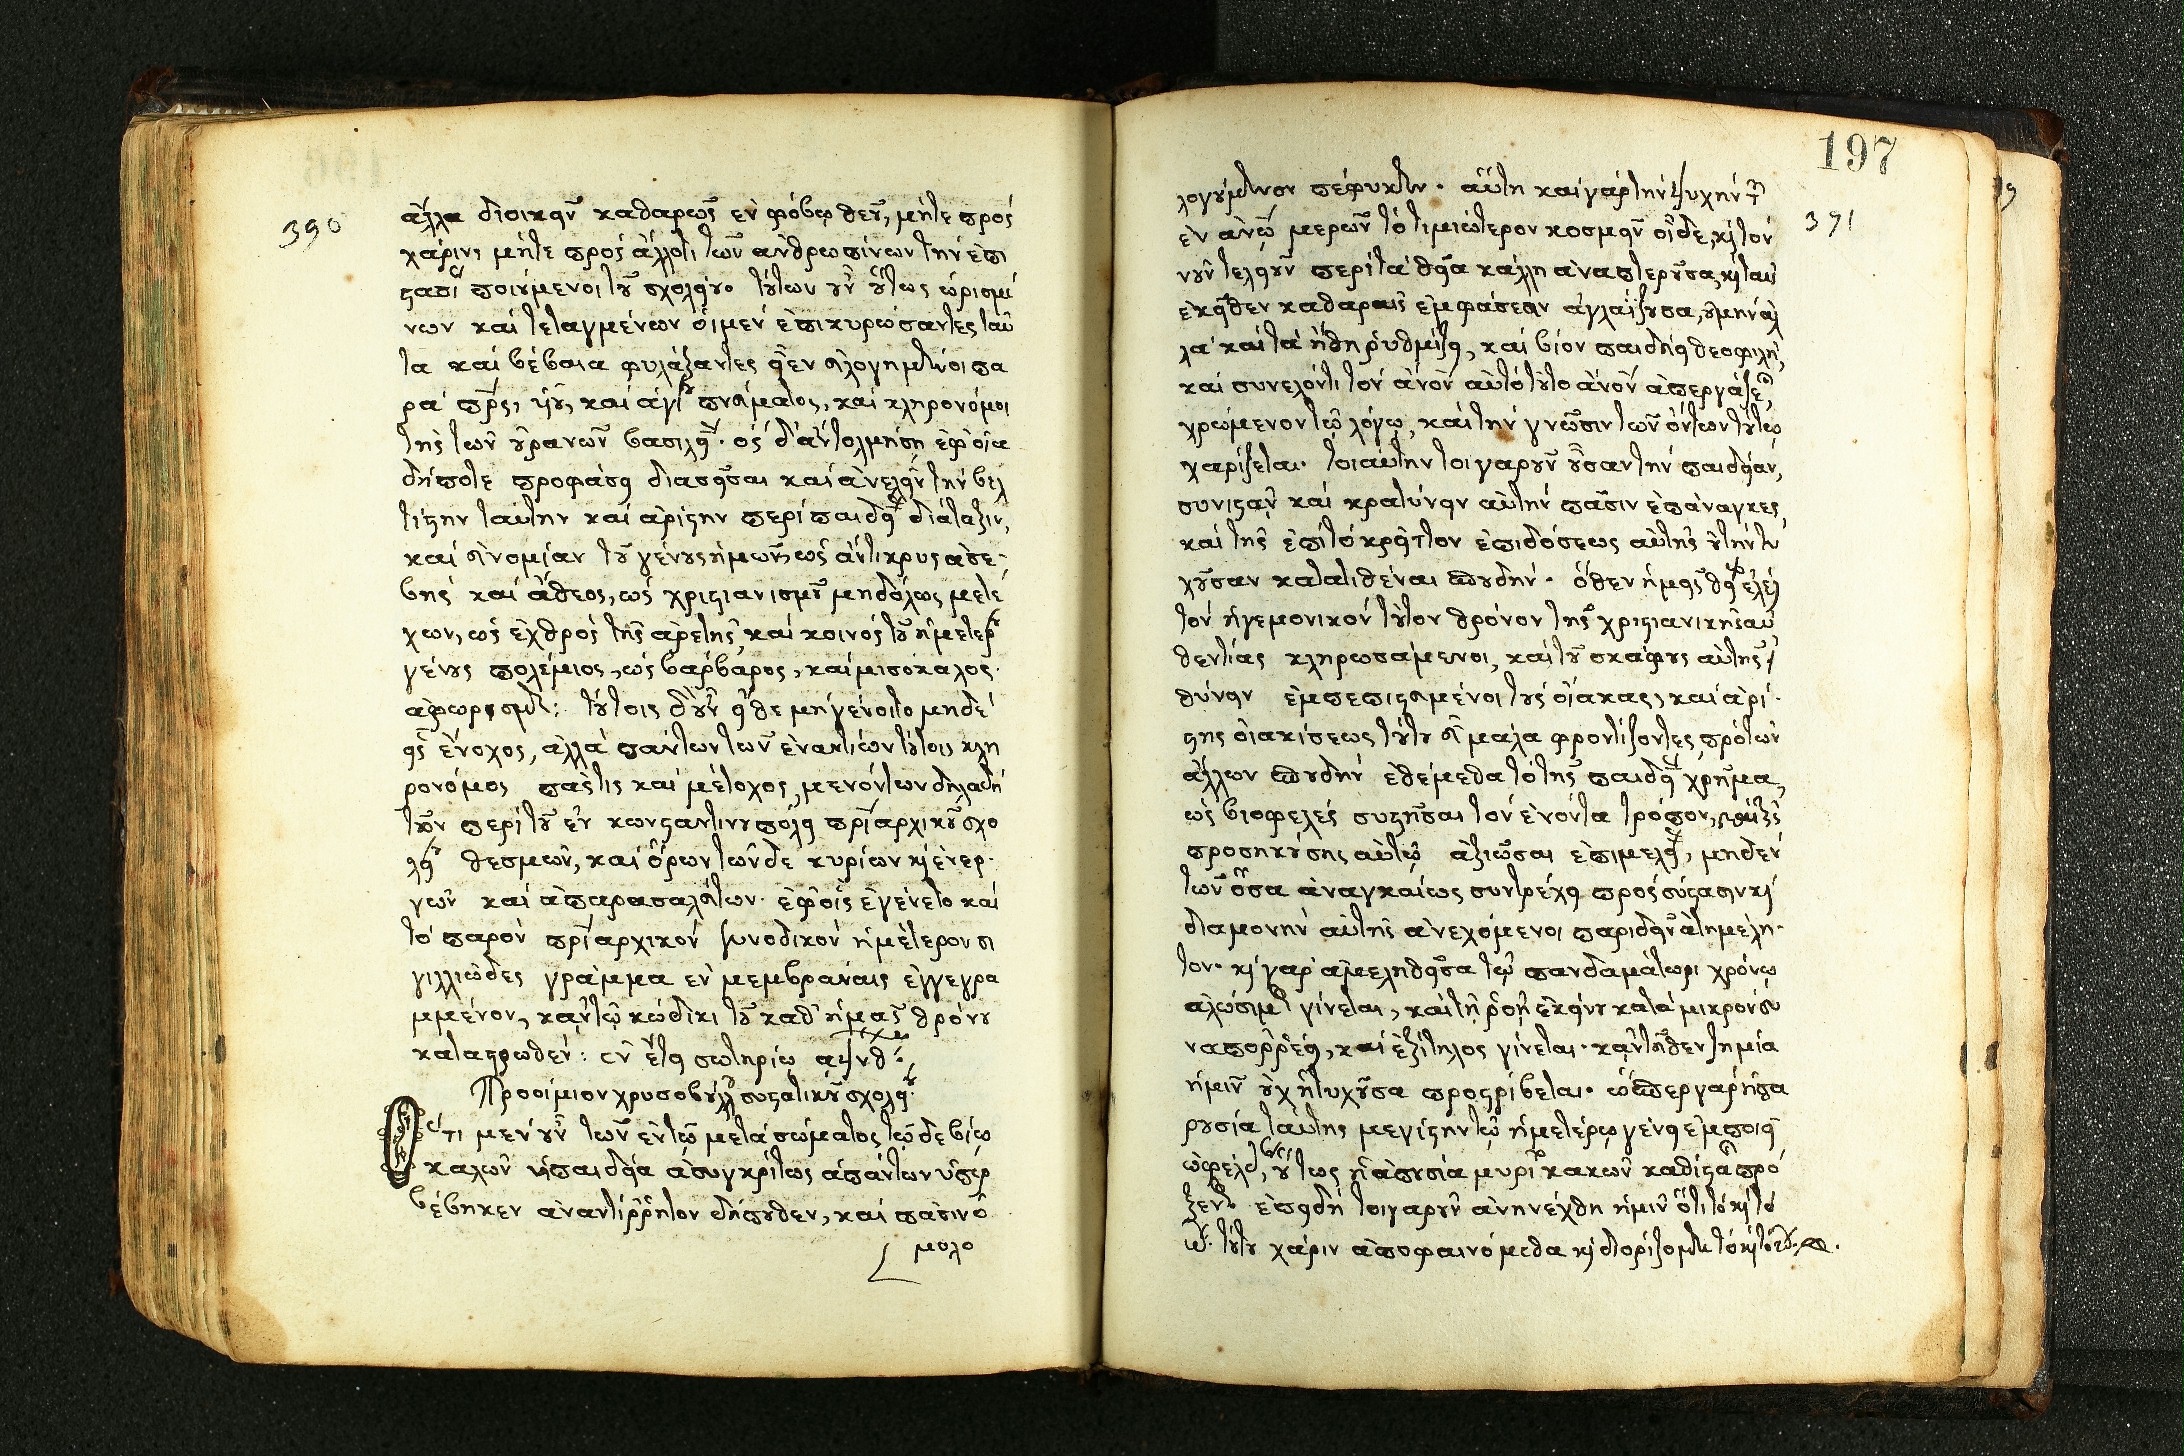 390
ἀλλὰ διοικεῖν καθαρῶς ἐν φόβῳ θεοῦ, μήτε πρὸς
χάριν, μήτε πρὸς ἄλλό τι τῶν ἀνθρωπίνων τὴν ἐπι
στασί ποιούμενοι τοῦ σχολείου. τούτων οὖν οὕτως ὡρισμέ
νων καὶ τεταγμένων οἱ μὲν ἐπικυρώσαντες ταῦ
τα καὶ βέβαια φυλάξαντες εἶεν εὐλογημένοι πα
ρὰ πρς, υἱοῦ, καὶ ἁγί πνεύματος, καὶ κληρονόμοι
τῆς τῶν οὐρανῶν βασιλεί. ὃς δ' ἂν τολμήσῃ ἐφ' οἵᾳ
δήποτε προφάσει διασεῖσαι καὶ ἀνελεῖν τὴν βελ
τίστην ταύτην καὶ ἀρίστην περὶ παιδεί διάταξιν,
καὶ εὐνομίαν τοῦ γένους ἡμῶν, ὡς ἄντικρυς ἀσε
βὴς καὶ ἄθεος, ὡς χριστιανισμοῦ μηδόλως μετέ
χων, ὡς ἐχθρὸς τῆς ἀρετῆς, καὶ κοινὸς τοῦ ἡμετέρ
γένους πολέμιος, ὡς βάρβαρος, καὶ μισόκαλος.
ἀφωρισμέ: τούτοις δ' οὖν εἴθε μὴ γένοιτο μηδὲ
εἷς ἔνοχος, ἀλλὰ πάντων τῶν ἐναντίων τούτοις κλη
ρονόμος πᾶς τις καὶ μέτοχος, μενόντων δηλαδὴ
τῶν περὶ τοῦ ἐν κωνσταντινουπόλει πριαρχικοῦ σχο
λεί θεσμῶν, καὶ ὅρων τῶνδε κυρίων κὶ ἐνερ
γῶν καὶ ἀπαρασαλεύτων. ἐφ' οἷς ἐγένετο καὶ
τὸ παρὸν πριαρχικὸν συνοδικὸν ἡμέτερον σι
γιλλιῶδες γράμμα ἐν μεμβράναις ἐγγεγρα
μμένον, κἀν τῷ κώδικι τοῦ καθ' ἡμᾶς θρόνου
καταστρωθέν: ἐν ἔτει σωτηρίῳ αψνθ
Προοίμιον χρυσοβούλλ συστατικοῦ σχολεί.
Ὅτι μὲν οὖν τῶν ἐν τῷ μετὰ σώματος τῷδε βίῳ
καλῶν ἡ παιδεία ἀσυγκρίτως ἁπάντων ὑπερ
βέβηκεν ἀναντίῤῥητον δήπουθεν, καὶ πᾶσιν ὁ
μολο
197
391
λογούμενον πέφυκεν. αὕτη καὶ γὰρ τὴν ψυχὴν τ
ἐν ἀνῳ μερῶν τὸ τιμιώτερον κοσμεῖν οἶδε, κὶ τὸν
νοῦν τελεοῦν περὶ τὰ θεῖα κάλλη ἀναπτεροῦσα, κὶ ταῖς
ἐκεῖθεν καθαραῖς ἐμφάσεσιν ἀγλαΐζουσα, οὐ μὴν ἀλ
λὰ καὶ τὰ ἤθη ῥυθμίζει, καὶ βίον παιδεύει θεοφιλῆ,
καὶ συνελόντι τὸν ἄνον αὐτὸ τοῦτο ἄνον ἀπεργάζε,
χρώμενον τῷ λόγῳ, καὶ τὴν γνῶσιν τῶν ὄντων τούτῳ
χαρίζεται. τοιαύτην τοιγαροῦν οὖσαν τὴν παιδείαν,
συνιστᾶν καὶ κρατύνειν αὐτὴν πᾶσιν ἐπάναγκες,
καὶ τῆς ἐπὶ τὸ κρεῖττον ἐπιδόσεως αὐτῆς οὐ τὴν τυ
χοῦσαν κατατιθέναι σπουδήν. ὅθεν ἡμεῖς θεί ἐλέει
τὸν ἡγεμονικὸν τοῦτον θρόνον τῆς χριστιανικῆς αὐ
θεντίας κληρωσάμενοι, καὶ τοῦ σκάφους αὐτῆς
θύνειν ἐμπεπιστευμένοι τοὺς οἴακας, καὶ ἀρί
στης οἰακίσεως τούτου εὖ μάλα φροντίζοντες, πρὸ τῶν
ἄλλων σπουδὴν ἐθέμεθα τὸ τῆς παιδεί χρῆμα,
ὡς βιοφελὲς συστῆσαι τὸν ἐνόντα τρόπον,
προσηκούσης αὐτῷ ἀξιῶσαι ἐπιμελεί, μηδὲν
τῶν ὅσα ἀναγκαίως συντρέχει πρὸς σύστασιν κὶ
διαμονὴν αὐτῆς ἀνεχόμενοι παριδεῖν ἀτημέλη
τον. κὶ γὰρ ἀμεληθεῖσα τῷ πανδαμάτωρι χρόνῳ
ἁλώσιμ γίνεται, καὶ τῇ ῥοῇ ἐκείνου κατὰ μικρὸν συ
ναποῤῥέει, καὶ ἐξίτηλος γίνεται. κἀντεῦθεν ζημία
ἡμῖν οὐχ ἡ τυχοῦσα προστρίβεται. ὥσπερ γὰρ ἡ πα
ρουσία ταύτης μεγίστην τῷ ἡμετέρῳ γένει ἐμποιεῖ
ὠφέλει, οὕτως ἡ ἀπουσία μυρί κακῶν καθίστα πρό
ξεν. ἐπειδὴ τοιγαροῦν ἀνηνέχθη ἡμῖν ὅτι τὸ κὶ τὸ
τούτου χάριν ἀποφαινόμεθα κὶ διοριζόμε τὸ κὶ τὸ